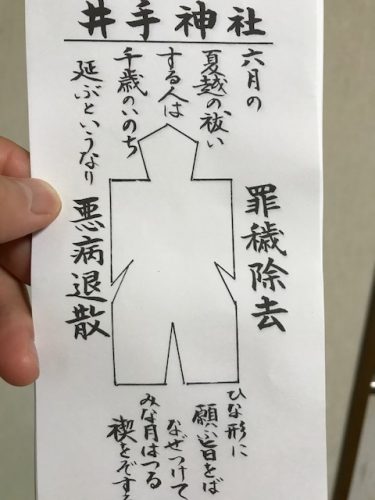 井手神社
六月の
夏越の祓い
する人は
千歳のいのち
延ぶというなり
罪穢除去
悪病退散
ひな形に
願い旨をば
なぜつけて
みな月はつる
禊をぞする